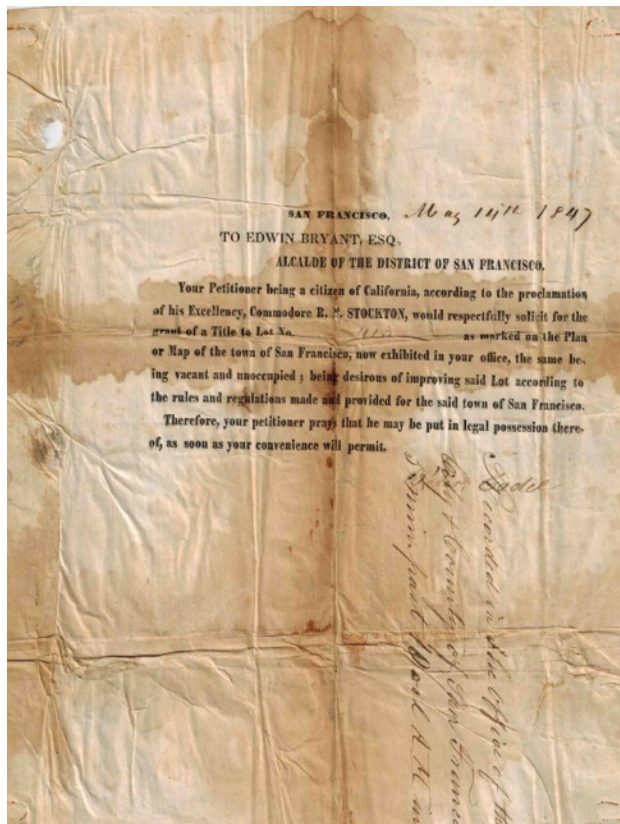 SAN FRANCISCO, May 14th 1847
TO EDWIN BRYANT, ESQ.
ALCALDE OF THE DISTRICT OF SAN FRANCISCO.
Your Petitioner being a citizen of California, according to the proclamation
of his Excellency, Commodore R. F. STOCKTON, would respectfully solicit for the
grant of a Title to Lot No. as marked on the Plan
or Map of the town of San Francisco, now exhibited in your office, the same be-
ing vacant and unoccupied ; being desirous of improving said Lot according to
the rules and regulations made and provided for the said town of San Francisco.
Therefore, your petitioner prays that he may be put in legal possession there-
of, as soon as your convenience will permit.
Recorded in the Office of the
City & County of San Franc
5 min. past A. M.